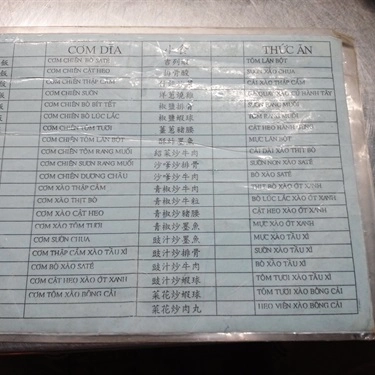 CƠM DĨA 小食 THỨC ĂN
飯 CƠM CHIÊN BÒ SATE 吉列蝦 TÔM LĂN BỘT
飯 CƠM CHIÊN CẬT HEO SƯỜN XÀO CHUA
飯 CƠM CHIÊN THẬP CẨM CẢI XÀO THẬP CẨM
飯 CƠM CHIÊN SƯỜN 洋葱燒雞 GÀ QUAY XÀO CỦ HÀNH TÂY
CƠM CHIÊN BÒ BÍT TẾT 椒鹽排骨 SƯỜN RANG MUỐI
CƠM CHIÊN BÒ LÚC LẮC 椒鹽蝦球 TÔM RANG MUỐI
CƠM CHIÊN TÔM TƯƠI 薑葱豬腰 CẬT HEO HÀNH GỪNG
CƠM CHIÊN TÔM LĂN BỘT MỰC LĂN BỘT
CƠM CHIÊN TÔM RANG MUỐI 炒牛肉 XÀO THỊT BÒ
CƠM CHIÊN SƯỜN RANG MUỐI 沙爹炒排骨 SƯỜN NON XÀO SATÊ
CƠM CHIÊN DƯƠNG CHÂU 沙爹炒牛肉 BÒ XÀO SATÊ
CƠM XÀO THẬP CẨM 青椒炒牛肉 THỊT BÒ XÀO ỚT XANH
CƠM XÀO THỊT BÒ 青椒炒牛粒 BÒ LÚC LẮC XÀO ỚT XANH
CƠM XÀO CẬT HEO 青椒炒豬腰 CẬT HEO XÀO ỚT XANH
CƠM XÀO TÔM TƯƠI 青椒炒墨魚 MỰC XÀO ỚT XANH
CƠM SƯỜN CHUA 豉汁炒墨魚 MỰC XÀO TÀU XÌ
CƠM THẬP CẨM XÀO TÀU XÌ 豉汁炒排骨 SƯỜN XÀO TÀU XÌ
CƠM BÒ XÀO SATÊ 豉汁炒牛肉 BÒ XÀO TÀU XÌ
CƠM CẬT HEO XÀO ỚT XANH 豉汁炒蝦球 TÔM TƯƠI XÀO TÀU XÌ
CƠM TÔM XÀO BÔNG CẢI 菜花炒蝦球 TÔM TƯƠI XÀO BÔNG CẢI
菜花炒肉丸 HEO VIÊN XÀO BÔNG CẢI